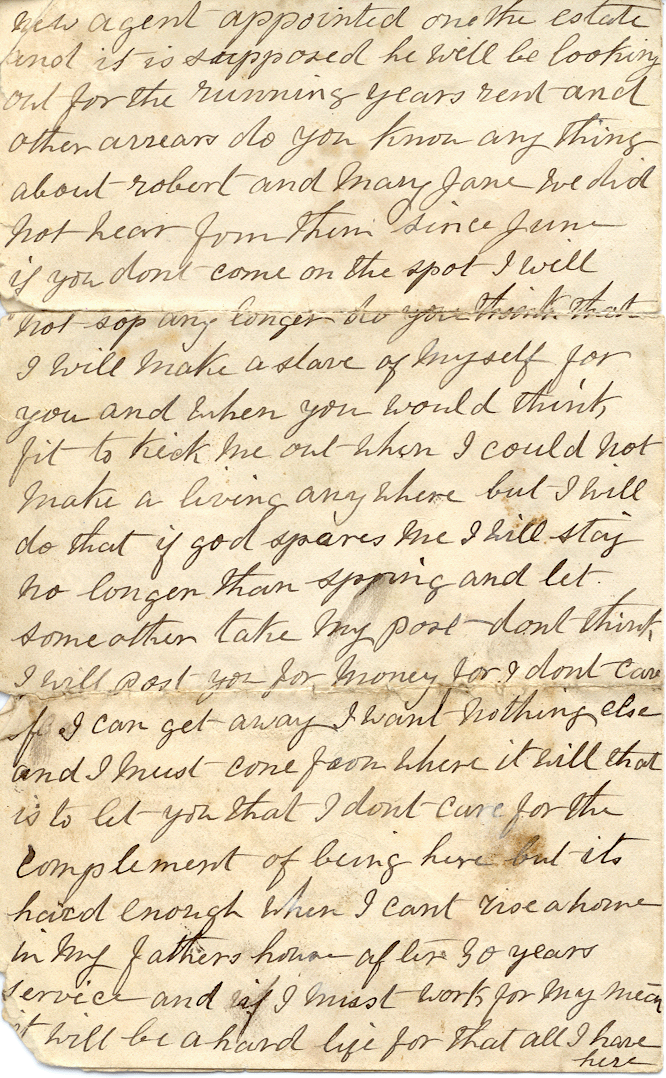 new agent appointed one the estate
and it is supposed he will be looking
out for the running years rent and
other arrears do you know any thing
about robert and Mary Jane we did
not hear from them since June
if you dont come on the spot I will
not sop any longer do you think that
I will make a slave of Myself for
you and when you would think
fit to kick me out when I could not
make a living anywhere but I will
do that if god spares me I will stay
no longer than spring and let
some other take my post dont think
I will post you for money for I dont care
if I can get away I want nothing else
and I must cone from where it will that
is to let you that I dont care for the
complement of being here but its
hard enough when I cant rise a home
in my fathers house after 30 years
service and if I misst work for my
it will be a hard life for that all I have
here